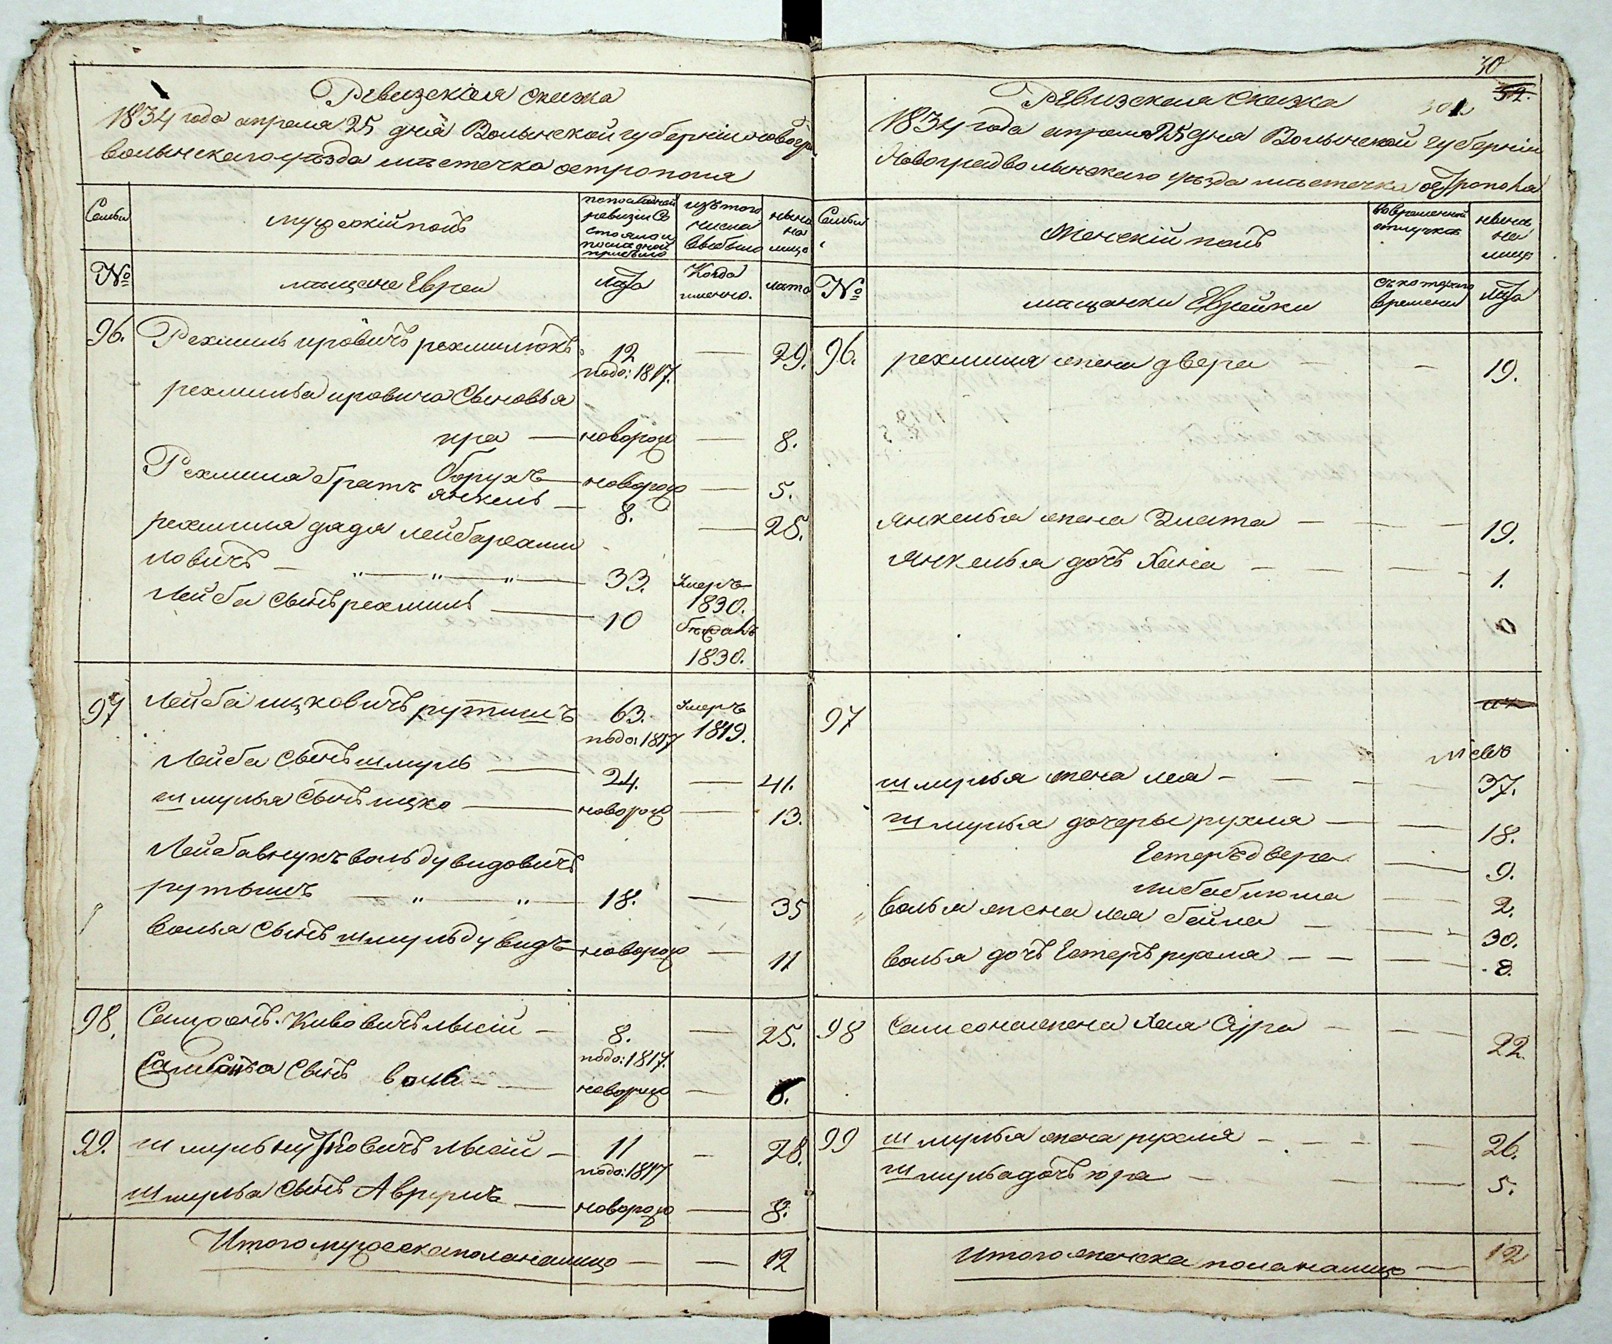 Ревизская сказка
1834 года апреля 25 дня Волынской губернии новогра
волынского уезда местечка острополя
Семьи
мужеский полъ
по последней ревизии состояло и после оной прибыло
изъ того числа выбыло
ныне на лицо
№
мещане Евреи
лета
Когда именно.
лета
96. Рехмиль ировичъ рехмилюкъ 12 — 29.
подо: 1817.
рехмиля ировича сыновья
ира — новорож — 8.
борухъ — новорож — 5.
Рехмиля братъ янкель — 8. — 25.
рехмиля дядя лейба рехми
ловичъ — " — " — " — 33. Умеръ 1830.
Лейба сынъ рехмиль — 10 бежалъ 1830.
97 Лейба ицковичъ рутишъ 63. Умеръ 1819.
подо: 1817
Лейба сынъ шмуль — 24. — 41.
шмуля сынъ ицко — новорож — 13.
Лейба внукъ воль дувидовичъ
рутышъ — " — " — 18. — 35
волья сынъ шмуль дувидъ — новорож — 11
98. Самсонъ Кивовичъ лысий — 8. — 25.
подо: 1817.
Самсона сынъ воль — новорож — 6.
99. шмуль ну
овичъ лысий — 11 — 28.
подо: 1817
шмуля сынъ Аврумъ — новорож — 8.
Итого мужеска пола на лицо — — 12
30
32.
Ревизская сказка
1834 года апреля 25 дня Волынской губернии
Новоградволынского уезда местечка острополя
Семьи
женский полъ
во временной отлучке
ныне на лицо
№
мещанки Еврейки
съ которого времени
лета
96. рехмиля жена двера — 19.
янкеля жена Злата — — — 19.
Янкеля дочь Хана — — — 1.
97
шмуля жена лея — — — 37.
шмуля дочеры рухля — — 18.
Естеръ двера — 9.
2.
волья жена лая бейла — — 30.
волья дочь Естеръ рухла — — 8.
98 Самсона жена Хая Сура — — 22.
99 шмуля жена рухля — — — 26.
шмуля дочь юра — — — 5.
Итого женска пола на лицо — 12